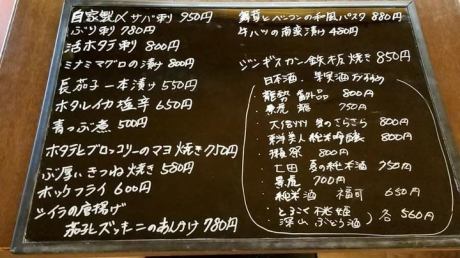 自家製〆サバ刺 950円
ぶり刺 780円
活ホタテ刺 800円
ミナミマグロの漬け 800円
長茄子一本漬け 550円
ホタルイカ塩辛 650円
青つぶ煮 500円
ホタテとブロッコリーのマヨ焼き 750円
ぶ厚いきつね焼き 580円
ホッケフライ 600円
シイラの唐揚げ
茄子とズッキーニのあんかけ 780円
舞茸とベーコンの和風パスタ 880円
牛ハツの南蛮漬け 480円
ジンギスカン鉄板焼き 850円
日本酒、果実酒
800円
750円
さらさら 800円
純米吟醸 800円
800円
七田 夏の純米酒 750円
700円
純米酒 福司 650円
とろこく桃姫
深山ぶどう酒 各560円